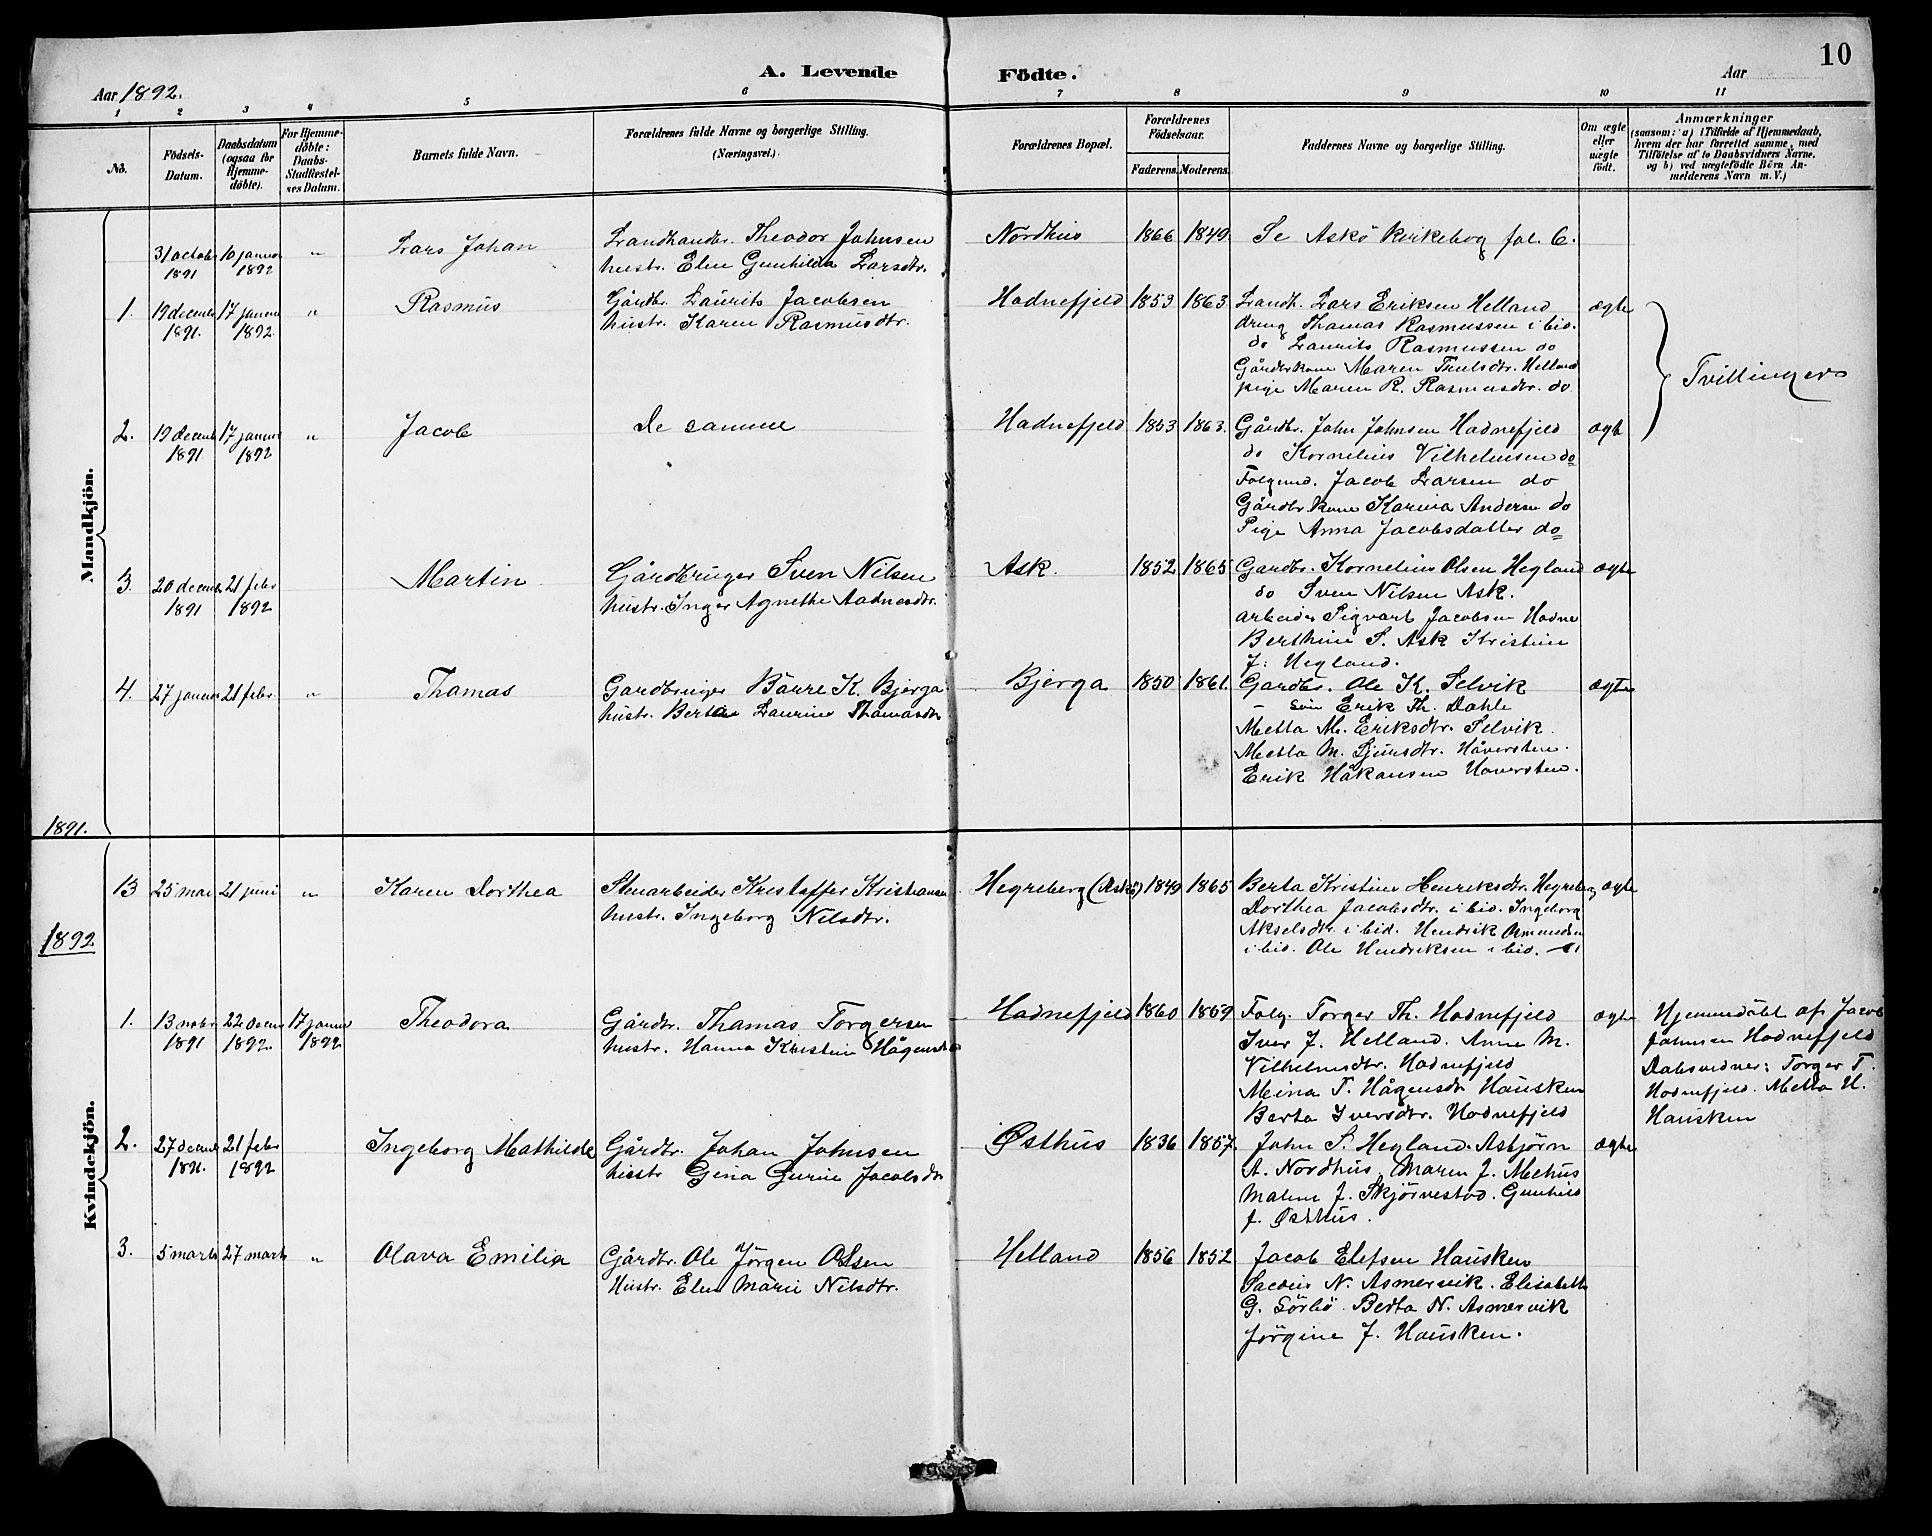 10
A. Levende Födte.
Aar 1892. Aar
1 2 3 4 5 6 7 8 9 10 11
No.
Födsels-Datum.
Daabsdatum (ogsaa for Hjemme-döbte).
For Hjemme-döbte: Daabs-Stadfæstel-ses Datum.
Barnets fulde Navn.
Forældrenes fulde Navne og borgerlige Stilling. (Næringsvei.)
Forældrenes Bopæl.
Forældrenes Födselsaar. Faderens. Moderens.
Faddernes Navne og borgerlige Stilling.
Om ægte eller uægte födt.
Anmærkninger (saasom: a) i Tilfælde af Hjemmedaab, hvem der har forrettet samme, med Tilföielse af to Daabsvidners Navne, og b) ved uægtefödte Börn An-melderens Navn m. V.)
Mandkjön.
31 octobr 1891 10 januar 1892 " Lars Johan
Landhandlr. Theodor Johnsen
hustr. Elen Gunhilda Larsdtr.
Nordhus 1866 1849 Se Askö Kirkebog fol. 6.
1. 19 decembr 1891. 17 januar 1892 " Rasmus
Gårdbr. Laurits Jacobsen
hustr. Karen Rasmusdtr.
Hadnefjeld 1853 1863 Landh. Lars Eriksen Helland ægte
dreng Thamas Rasmussen i bid.
do Laurits Rasmussen do
Gårderkone Maren Trulsdtr. Helland
pige Maren R. Rasmusdtr. do
Tvillinger
2. 19 decembr 1891 17 januar 1892 " Jacob
De samme
Hadnefjeld 1853 1863. Gårdbr. John Johnsen Hadnefjeld ægte
do Kornelius Vilhelmsen do
Folgemd. Jacob Larsen do
Gårdbr. kone Karina Andersen do
Pige Anna Jacobsdatter do
3. 20 decembr 1891 21 febr 1892 " Martin
Gårdbruger Sven Nilsen
hustr. Inger Agnethe Aadnesdtr.
Ask. 1852 1865 Gardbr. Kornelius Olsen Hegland ægte
do Sven Nilsen Ask.
arbeider Sigvart Jacobsen Hadne
Berthine S. Ask Kristine
J. Hegland.
4. 27 januar 21 febr " Thamas
Gardbruger Bårre K. Bjerga
hustr. Berta Laurine Thamasdtr
Bjerga 1850 1861. Gardbr. Ole K. Selvik ægte
– Erik Th. Dahle
Metta M. Eriksdtr. Selvik.
Metta M. Sjursdtr. Håversten.
Erik Håkansen Haversten.
1891.
13 25 mai 21 juni " Karen Dorthea
Stenarbeider Kristoffer Kristiansen
hustr. Ingeborg Nilsdtr.
Hegreberg (Askö) 1849 1865 Berta Kristine Henriksdtr. Hegreberg ægte
Dorthea Jacobsdtr. i bid. Ingeborg
Akselsdtr i bid. Hendrik Osmundsen
i bid. Ole Hendriksen i bid.
1892.
Kvindekjön.
1. 13 nobr 1891 22 decmr 1892. 17 januar 1892 Theodora
Gårdbr. Thamas Torgersen
hustr. Hanna Kristine Hågensdtr
Hadnefjeld 1860 1859 Folg. Torger Th. Hadnefjeld ægte
Iver J. Helland. Anne M.
Vilhelmsdtr. Hadnefjeld
Meina T. Hågensdtr Hausken
Berta Iversdtr. Hadnefjeld
Hjemmedöbt af Jacob
Johnsen Hadnefjeld
Dabsvidner: Torger T.
Hadnefjeld. Metta H.
Hausken
2. 27 decmbr 1891. 21 febr 1892 Ingeborg Mathilde
Gårdbr. Johan Johnsen
hustr Gina Gurine Jacobsdtr
Østhus 1836 1857. John S. Hegland. Asbjørn ægte
A. Nordhus. Maren J. Mehus
Malene J. Skjørvestad. Gunhild
J. Østhus.
3. 5 marts 27 marts " Olava Emilia
Gårdbr. Ole Jörgen Olsen
Hustr. Elen Marie Nilsdtr.
Helland 1856 1852 Jacob Elefsen Hausken
N. Asmervik. Elisabeth
G. Sörbö. Berta N. Asmervik
Jörgine J. Hausken.